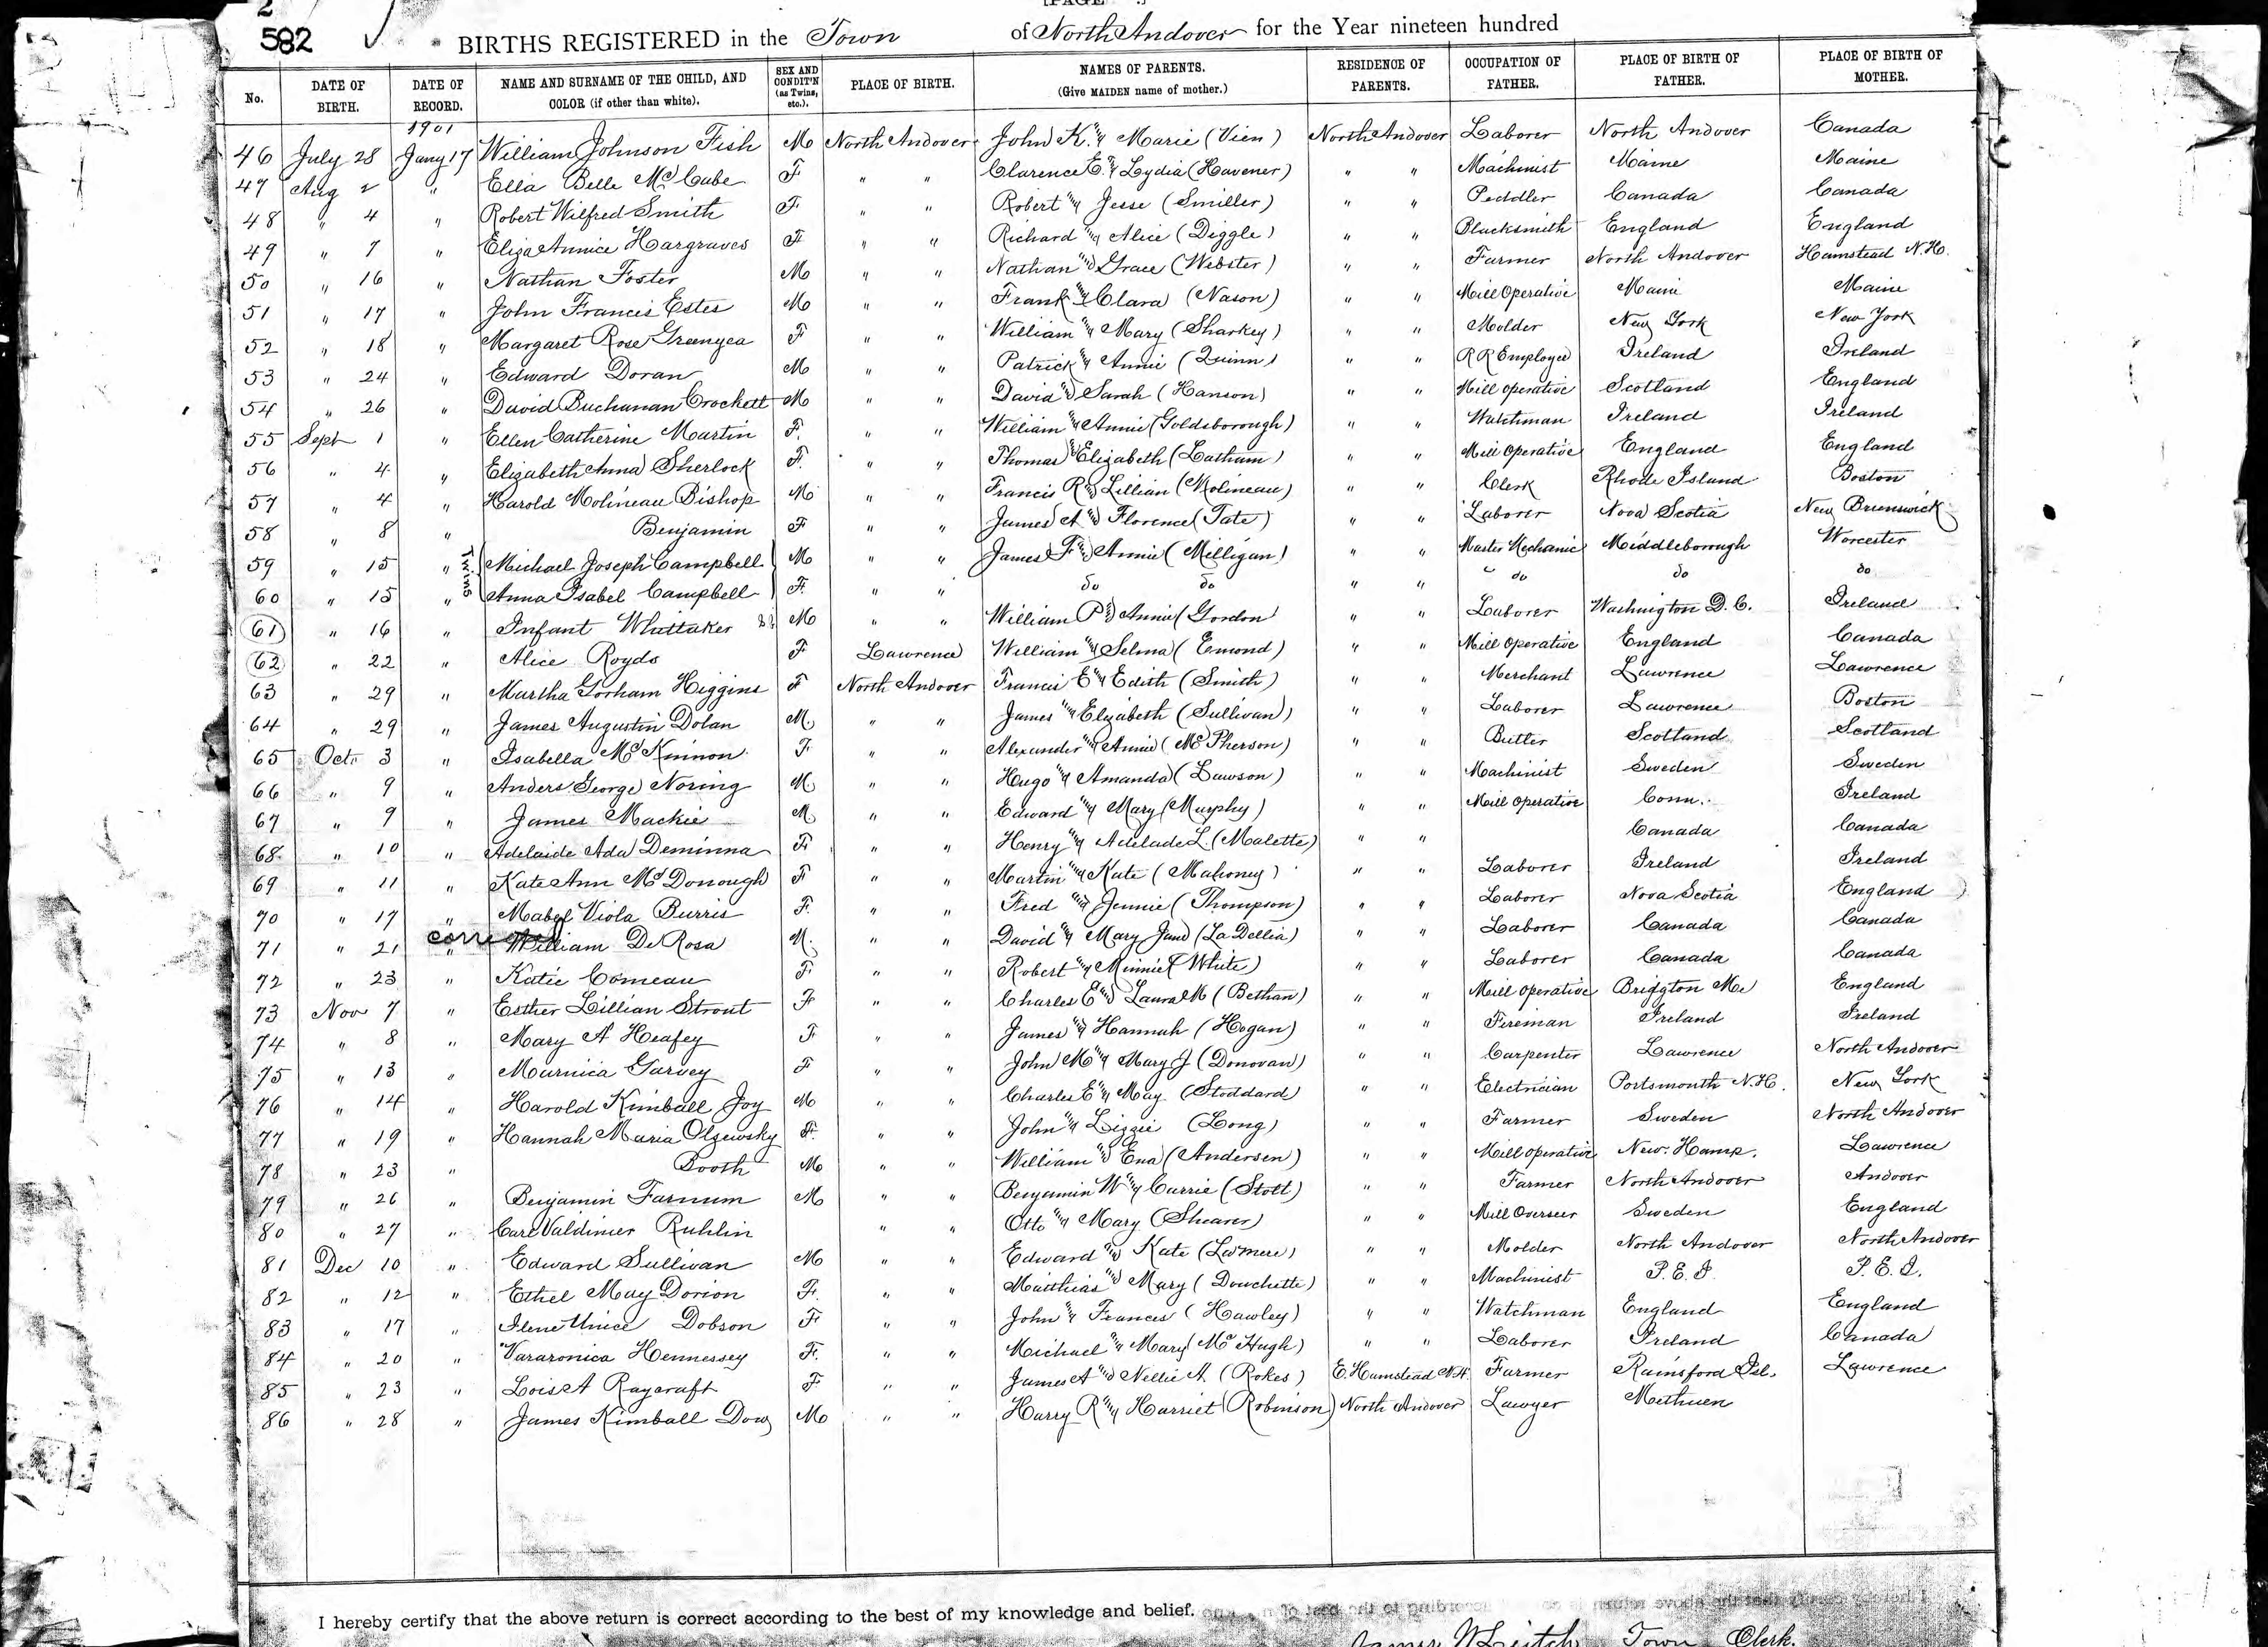 2
[PAGE .]
582 BIRTHS REGISTERED in the Town of North Andover for the Year nineteen hundred
No. DATE OF BIRTH. DATE OF RECORD. NAME AND SURNAME OF THE CHILD, AND COLOR (if other than white). SEX AND CONDIT'N (as Twins, etc.). PLACE OF BIRTH. NAMES OF PARENTS. (Give MAIDEN name of mother.) RESIDENCE OF PARENTS. OCCUPATION OF FATHER. PLACE OF BIRTH OF FATHER. PLACE OF BIRTH OF MOTHER.
1901
46 July 28 Jany 17 William Johnson Fish M North Andover John K. & Marie (Vien) North Andover Laborer North Andover Canada
47 Aug 2 " Ella Belle McCabe F " " Clarence E. & Lydia (Havener) " " Machinist Maine Maine
48 " 4 " Robert Wilfred Smith F " " Robert and Jesse (Smiller) " " Peddler Canada Canada
49 " 7 " Eliza Annice Hargraves F " " Richard and Alice (Diggle) " " Blacksmith England England
50 " 16 " Nathan Foster M " " Nathan and Grace (Webster) " " Farmer North Andover Hamstead N.H.
51 " 17 " John Francis Estes M " " Frank and Clara (Nason) " " Mill Operative Maine Maine
52 " 18 " Margaret Rose Greenyea F " " William and Mary (Sharkey) " " Molder New York New York
53 " 24 " Edward Doran M " " Patrick and Annie (Quinn) " " R R Employee Ireland Ireland
54 " 26 " David Buchanan Crockett M " " David and Sarah (Hanson) " " Mill operative Scotland England
55 Sept 1 " Ellen Catherine Martin F. " " William and Annie (Goldsborough) " " Watchman Ireland Ireland
56 " 4 " Elizabeth Anna Sherlock F. " " Thomas and Elizabeth (Latham) " " Mill Operative England England
57 " 4 " Harold Molineau Bishop M " " Francis R and Lillian (Molineau) " " Clerk Rhode Island Boston
58 " 8 " Benjamin F " " James A and Florence (Tate) " " Laborer Nova Scotia New Brunswick
59 " 15 " Twins Michael Joseph Campbell M " " James F. and Annie (Milligan) " " Master Mechanic Middleborough Worcester
60 " 15 " Anna Isabel Campbell F. " " do do " " do do do
61 " 16 " Infant Whittaker M " " William P and Annie (Gordon " " Laborer Washington D.C. Ireland
62 " 22 " Alice Royds F Lawrence William and Selma (Emond) " " Mill Operative England Canada
63 " 29 " Martha Gorham Higgins F North Andover Francis E and Edith (Smith) " " Merchant Lawrence Lawrence
64 " 29 " James Augustin Dolan M " " James and Elizabeth (Sullivan) " " Laborer Lawrence Boston
65 Oct. 3 " Isabella McKinnon F. " " Alexander and Annie (McPherson) " " Butler Scotland Scotland
66 " 9 " Anders George Noring M " " Hugo and Amanda (Lawson) " " Machinist Sweden Sweden
67 " 9 " James Mackie M " " Edward and Mary (Murphy) " " Mill Operative Conn. Ireland
68 " 10 " Adelaide Ada Deminna F " " Henry and Adelade L. (Malette) " " Canada Canada
69 " 11 " Kate Ann McDonough F " " Martin and Kate (Mahoney) " " Laborer Ireland Ireland
70 " 17 " Mabel Viola Burris F. " " Fred and Jennie (Thompson) " " Laborer Nova Scotia England
71 " 21 " corrected William De Rosa M. " " David and Mary Jane (La Dellia) " " Laborer Canada Canada
72 " 23 " Katie Comeau F " " Robert and Minnie (White) " " Laborer Canada Canada
73 Nov 7 " Esther Lillian Strout F " " Charles E and Laura M (Bethan) " " Mill operative Bridgton Me England
74 " 8 " Mary A Heafey F " " James and Hannah (Hogan) " " Fireman Ireland Ireland
75 " 13 " Murnica Garvey F " " John M and Mary J (Donovan) " " Carpenter Lawrence North Andover
76 " 14 " Harold Kimball Joy M " " Charles E and May (Stoddard) " " Electrician Portsmouth N.H. New York
77 " 19 " Hannah Maria Olzewsky F. " " John and Lizzie (Long) " " Farmer Sweden North Andover
78 " 23 " Booth M " " William and Ena (Andersen) " " Mill operative New Hamp. Lawrence
79 " 26 " Benjamin Farnum M " " Benjamin W and Carrie (Stott) " " Farmer North Andover Andover
80 " 27 " Carl Valdimer Ruhlin " " Otto and Mary (Shearer) " " Mill Overseer Sweden England
81 Dec 10 " Edward Sullivan M " " Edward and Kate (Lamere) " " Molder North Andover North Andover
82 " 12 " Ethel May Dorion F. " " Matthias and Mary (Douchette) " " Machinist P.E.I. P.E.I.
83 " 17 " Ilene Unice Dobson F " " John and Frances (Hawley) " " Watchman England England
84 " 20 " Vararonica Hennessey F. " " Michael and Mary (McHugh) " " Laborer Ireland Canada
85 " 23 " Lois A Raycraft F " " James A and Nellie A. (Rokes) E. Hamstead N.H. Farmer Rainsford Isl. Lawrence
86 " 28 " James Kimball Dow M " " Harry R and Harriet (Robinson) North Andover Lawyer Methuen
I hereby certify that the above return is correct according to the best of my knowledge and belief.
James W Leitch Town Clerk.